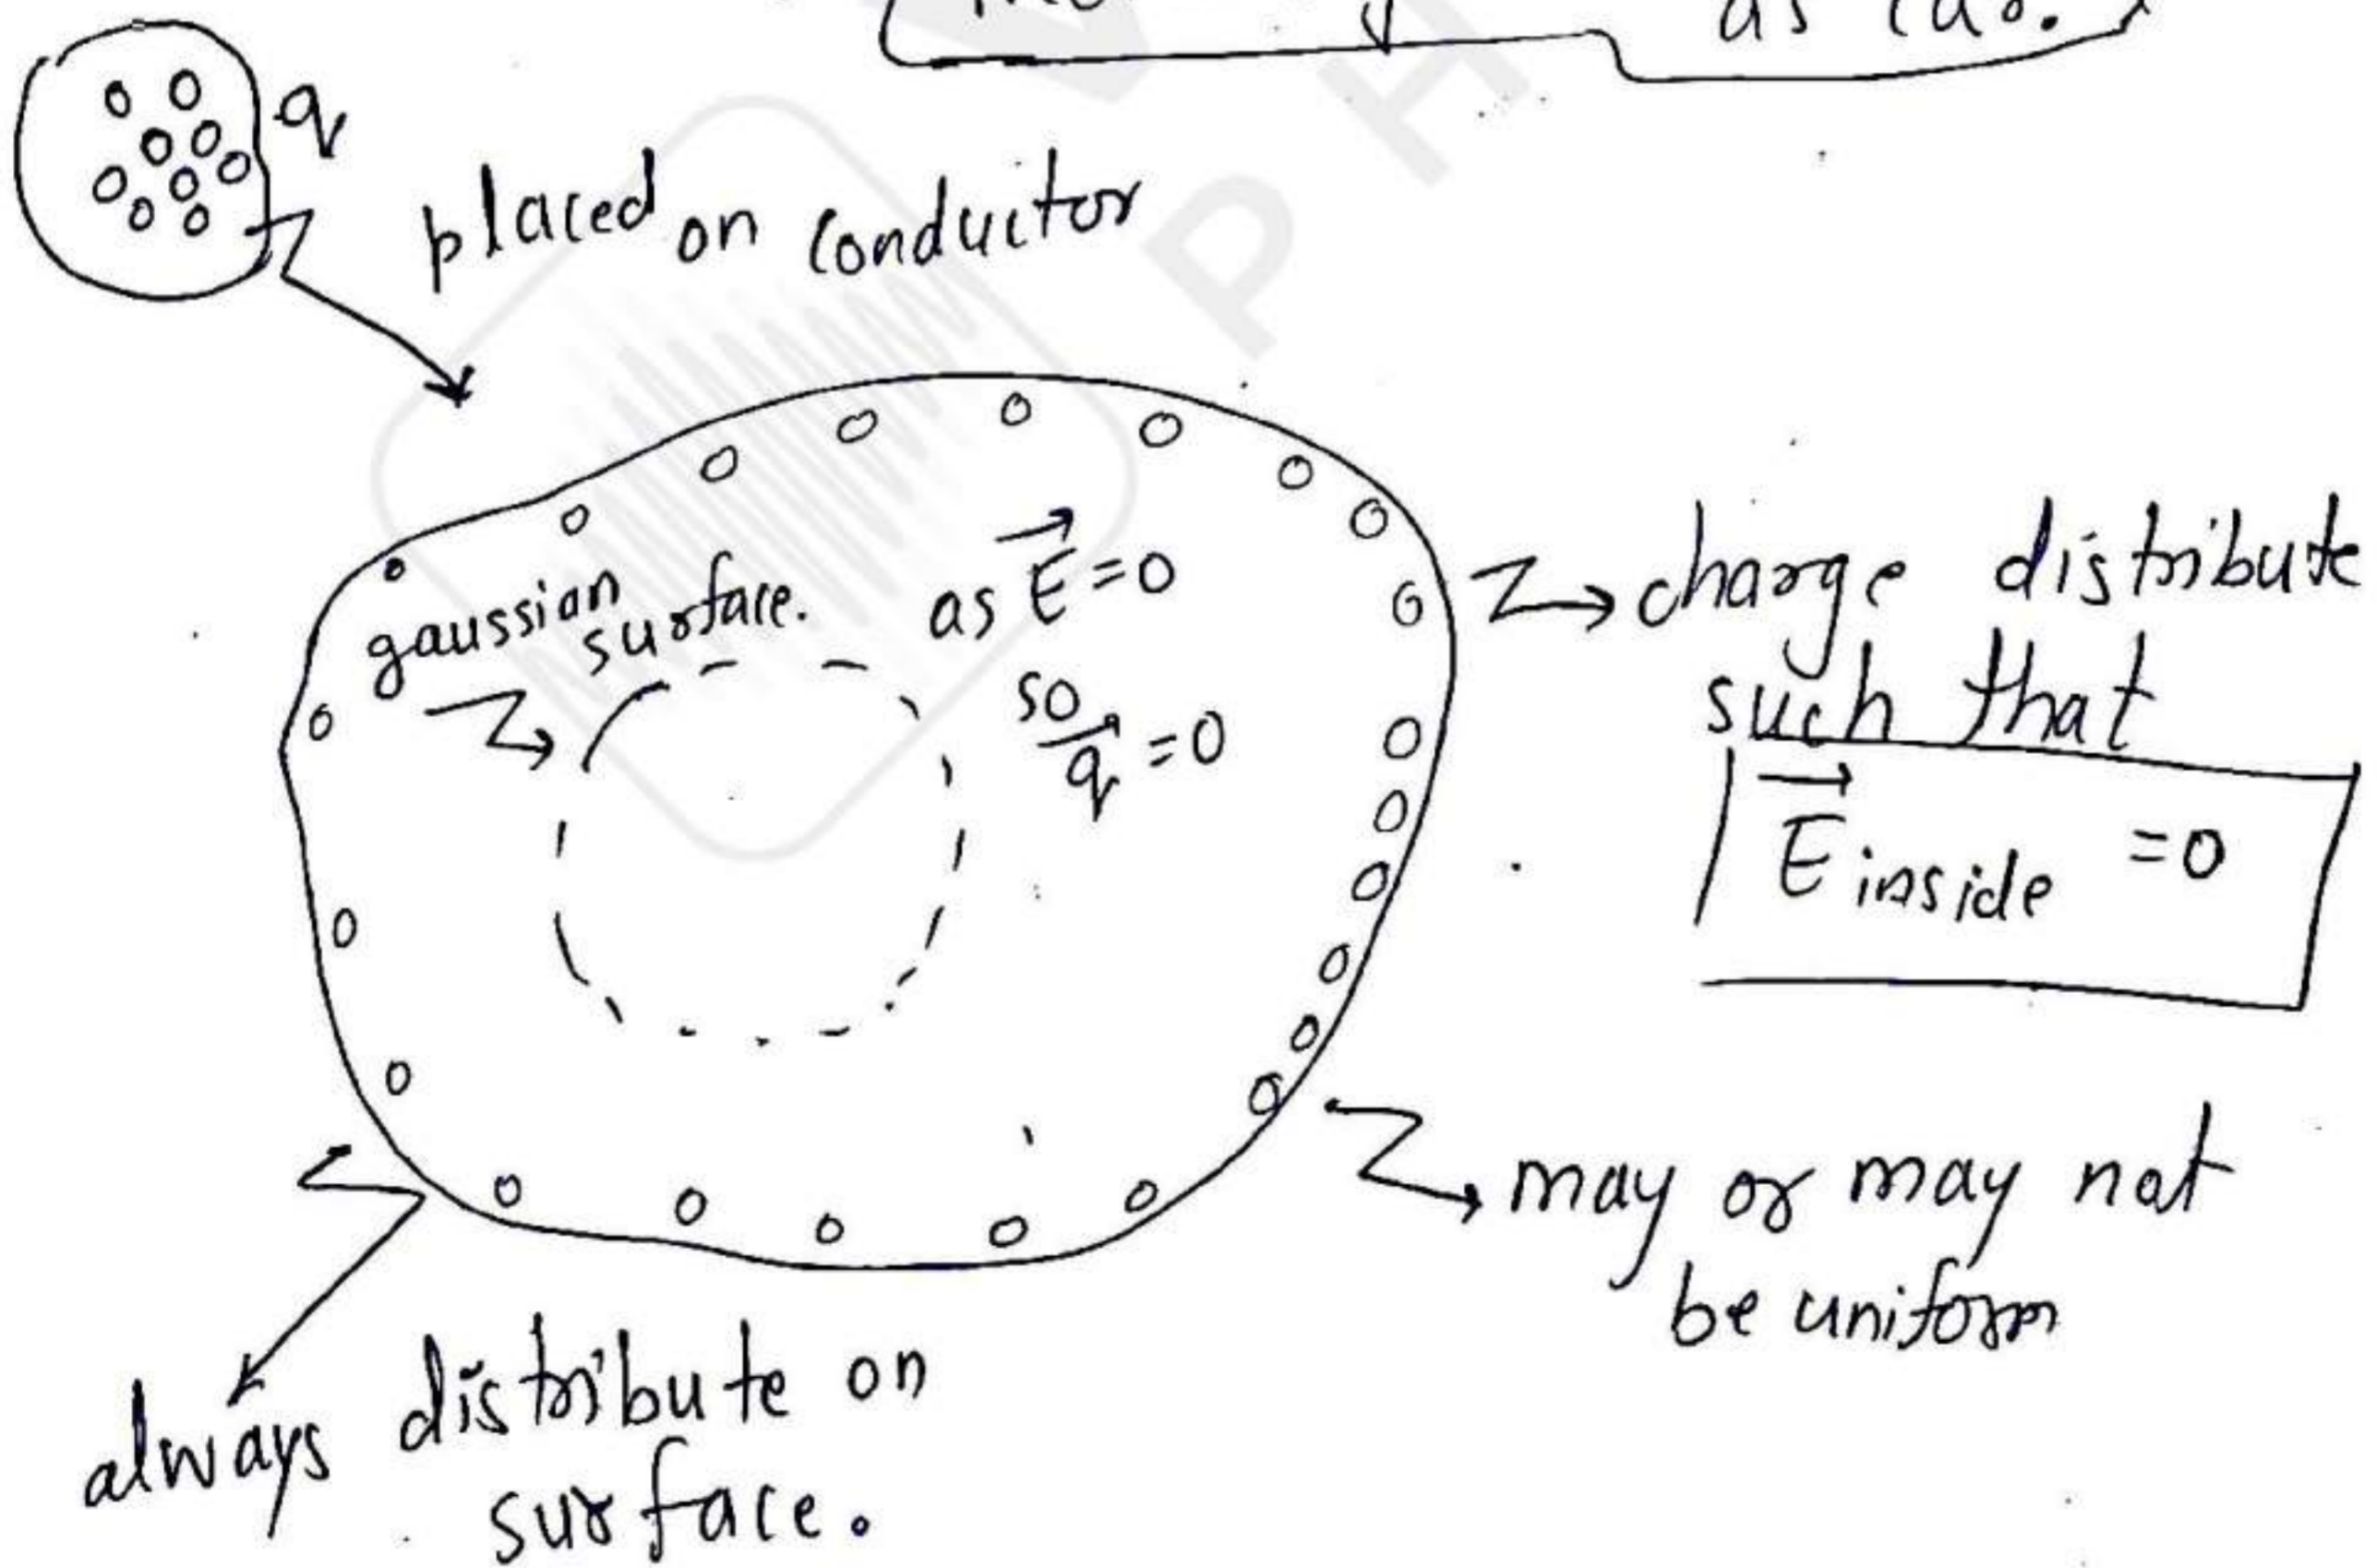 as
q
placed on conductor
gaussian
surface.
as E = 0
so
q = 0
charge distribute
such that
E inside = 0
may or may not
be uniform
always distribute on
surface.
P H